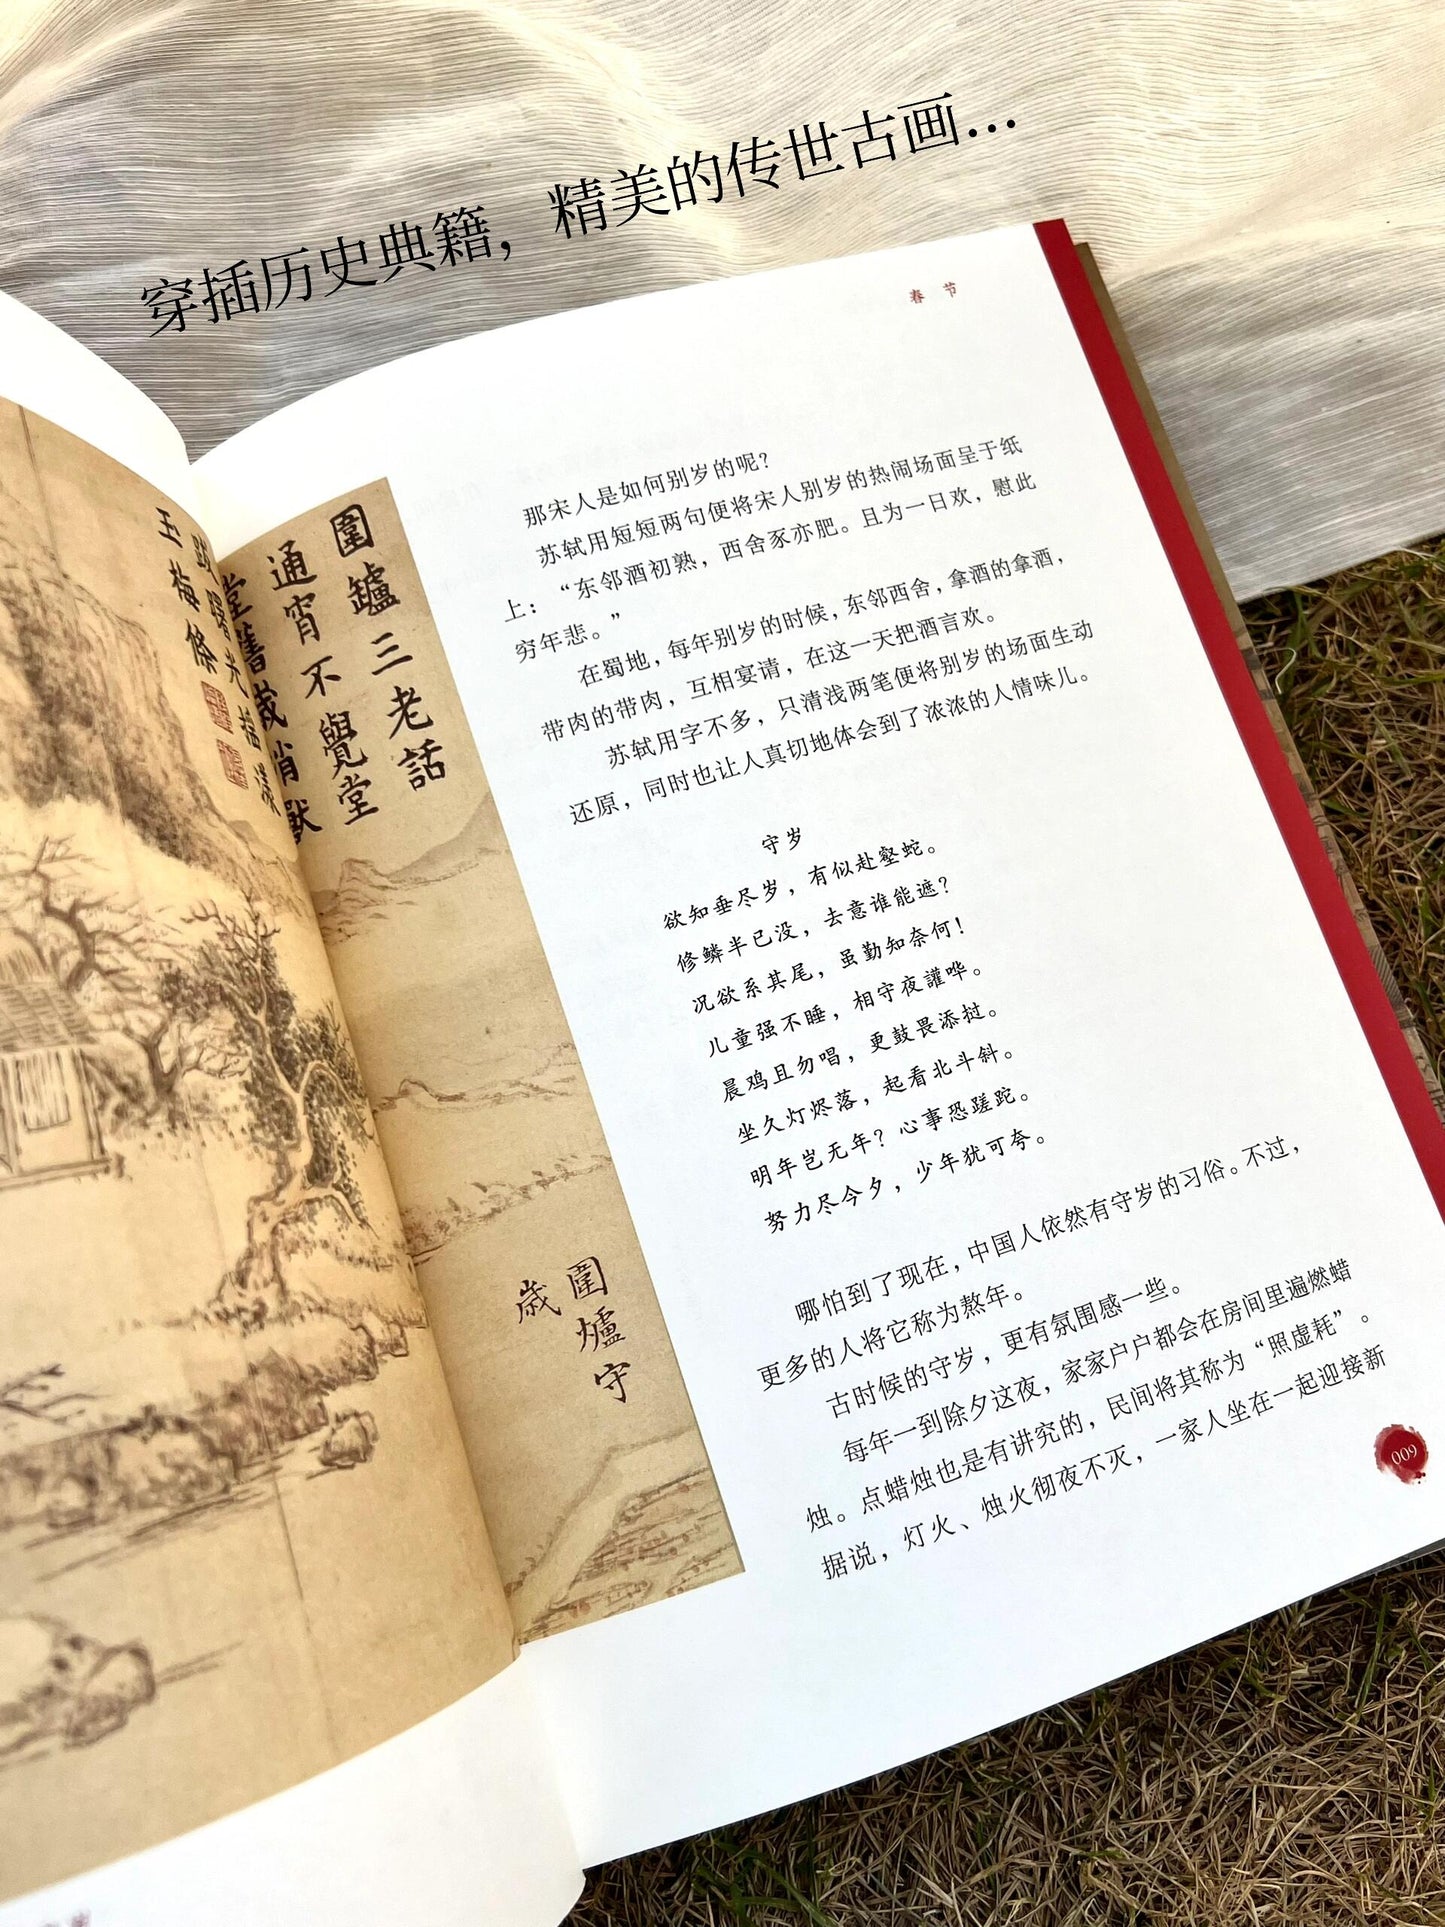 穿插历史典籍，精美的传世古画…
春 节
那宋人是如何别岁的呢？
苏轼用短短两句便将宋人别岁的热闹场面呈于纸
上：“东邻酒初熟，西舍豕亦肥。且为一日欢，慰此
穷年悲。”
在蜀地，每年别岁的时候，东邻西舍，拿酒的拿酒，
带肉的带肉，互相宴请，在这一天把酒言欢。
苏轼用字不多，只清浅两笔便将别岁的场面生动
还原，同时也让人真切地体会到了浓浓的人情味儿。
守岁
欲知垂尽岁，有似赴壑蛇。
修鳞半已没，去意谁能遮？
况欲系其尾，虽勤知奈何！
儿童强不睡，相守夜讙哗。
晨鸡且勿唱，更鼓畏添挝。
坐久灯烬落，起看北斗斜。
明年岂无年？心事恐蹉跎。
努力尽今夕，少年犹可夸。
哪怕到了现在，中国人依然有守岁的习俗。不过，
更多的人将它称为熬年。
古时候的守岁，更有氛围感一些。
每年一到除夕这夜，家家户户都会在房间里遍燃蜡
烛。点蜡烛也是有讲究的，民间将其称为“照虚耗”。
据说，灯火、烛火彻夜不灭，一家人坐在一起迎接新
009
圍鑪三老話
通宵不覺堂
堂舊歲消獸
曙光插
玉梅條
圍爐守
歲